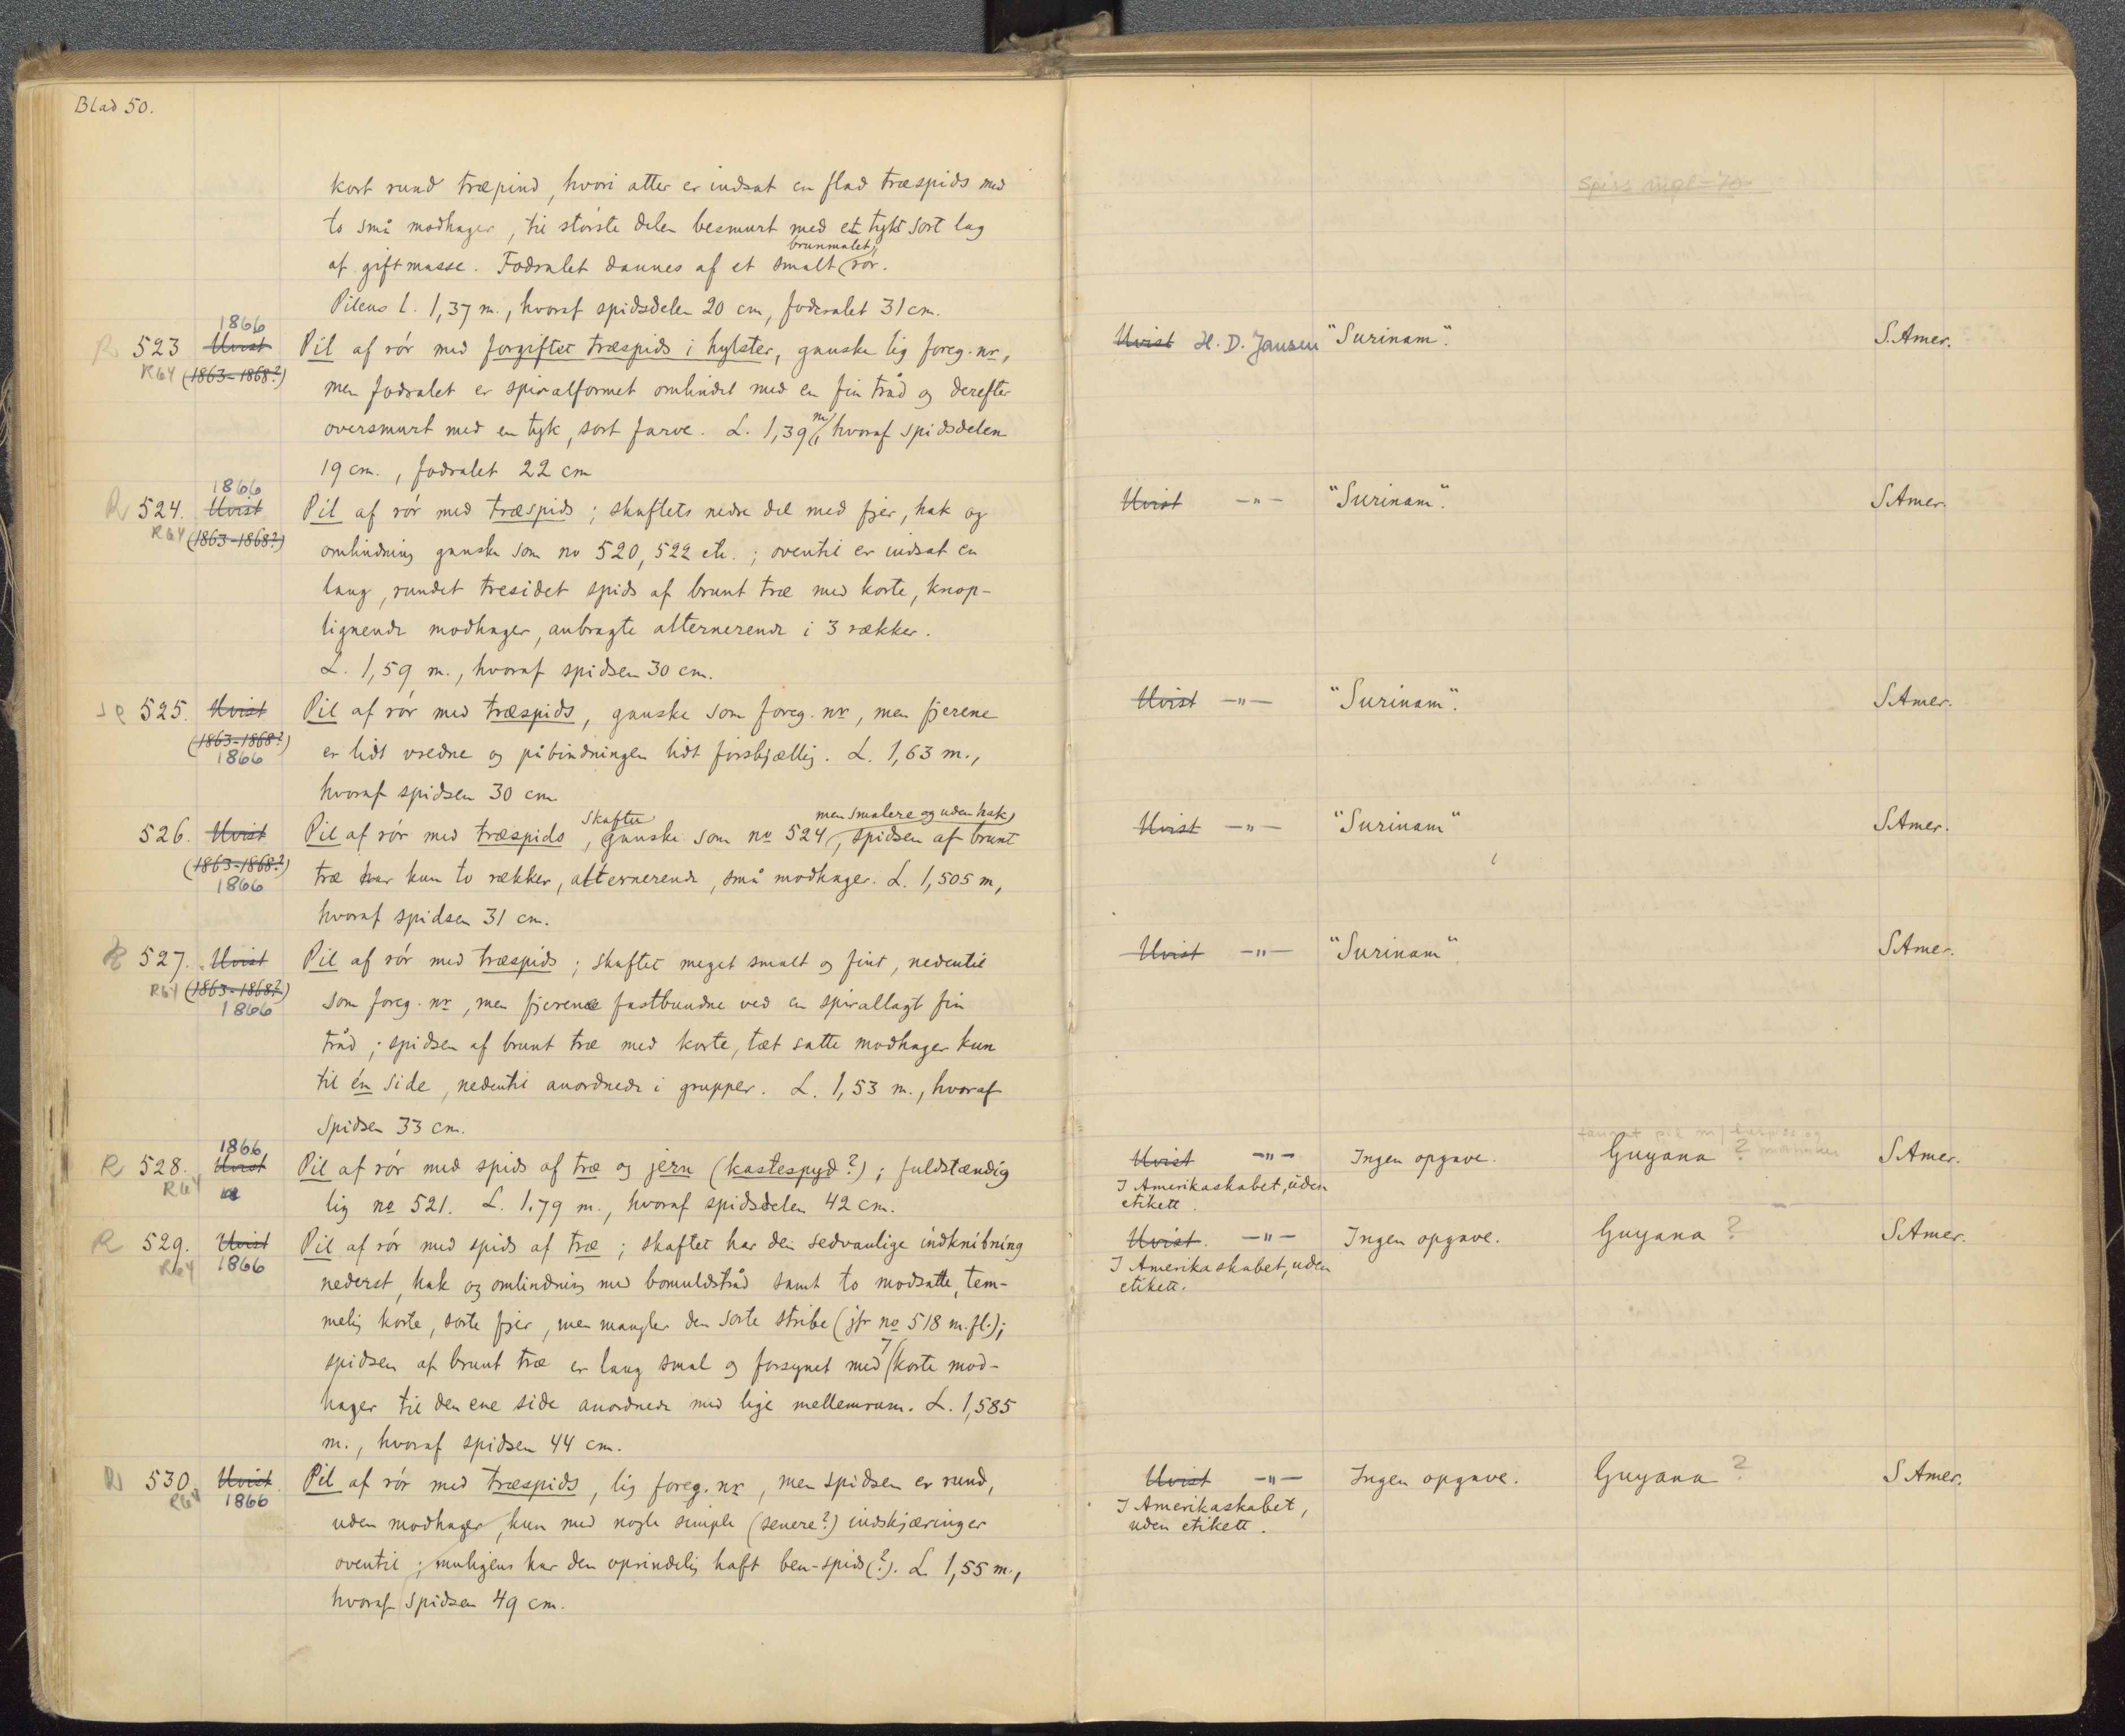 Blad 50.
kort rund træpind, hvori atter er indsat en flad træspids med
to små modhager, til største delen besmurt med et tykt sort lag
af giftmasse. Foderalet dannes af et smalt brunmalet rör.
Pilens l. 1,37 m., hvoraf spidsdelen 20 cm, foderalet 31 cm.
R 523 1866 Uvist Pil af rör med forgiftet træspids i hylster, ganske lig foreg. nr, Uvist H. D. Jansen "Surinam". S. Amer.
R64 (1863-1868?) men foderalet er spiralformet omlindet med en fin tråd og derefter
oversmurt med en tyk, sort farve. L. 1,39 m, hvoraf spidsdelen
19 cm., foderalet 22 cm
R 524. 1866 Uvist Pil af rör med træspids; skaftets nedre del med fjer, hak og Uvist -"- "Surinam". S Amer.
R64 (1863-1868?) omlindning ganske som no 520, 522 etc.; oventil er indsat en
lang, rundet tresidet spids af brunt træ med korte, knop-
lignende modhager, anbragte alternerende i 3 rækker.
L. 1,59 m., hvoraf spidsen 30 cm.
525. Uvist Pil af rör med træspids, ganske som foreg. nr, men fjerene Uvist -"- "Surinam". S Amer.
(1863-1868?) 1866 er lidt vredne og påbindningen lidt forskjællig. L. 1,63 m.,
hvoraf spidsen 30 cm
526. Uvist Pil af rör med træspids, skaftet ganske som no 524, men smalere og uden hak, spidsen af brunt Uvist -"- "Surinam" S Amer.
(1863-1868?) 1866 træ har kun to rækker, alternerende, små modhager. L. 1,505 m,
hvoraf spidsen 31 cm.
R 527. Uvist Pil af rör med træspids; skaftet meget smalt og fint, nedentil Uvist -"- "Surinam" S Amer.
R64 (1863-1868?) 1866 som foreg. nr, men fjerene fastbundne ved en spirallagt fin
tråd; spidsen af brunt træ med korte, tæt satte modhager kun
til én side, nedentil anordnede i grupper. L. 1,53 m., hvoraf
spidsen 33 cm.
R 528. 1866 Uvist Pil af rör med spids af træ og jern (kastespyd?); fuldstændig Uvist -"- Ingen opgave. Guyana ? S Amer.
R64 lig no 521. L. 1.79 m., hvoraf spidsdelen 42 cm. I Amerikaskabet, uden
etikett.
R 529. Uvist Pil af rör med spids af træ; skaftet har den sedvanlige indknibning Uvist. -"- Ingen opgave. Guyana ? S Amer.
R64 1866 nederst, hak og omlindning med bomuldstråd samt to modsatte, tem- I Amerikaskabet, uden
etikett.
melig korte, sorte fjer, men mangler den sorte stribe (jfr no 518 m.fl.);
spidsen af brunt træ er lang smal og forsynet med 7 korte mod-
hager til den ene side anordnede med lige mellemrum. L. 1,585
m., hvoraf spidsen 44 cm.
R 530. Uvist Pil af rör med træspids, lig foreg. nr, men spidsen er rund, Uvist -"- Ingen opgave. Guyana ? S Amer.
R64 1866 uden modhager, kun med nogle simple (senere?) indskjæringer I Amerikaskabet,
uden etikett.
oventil; muligens har den oprindelig haft ben-spids (?). L 1,55 m.,
hvoraf spidsen 49 cm.